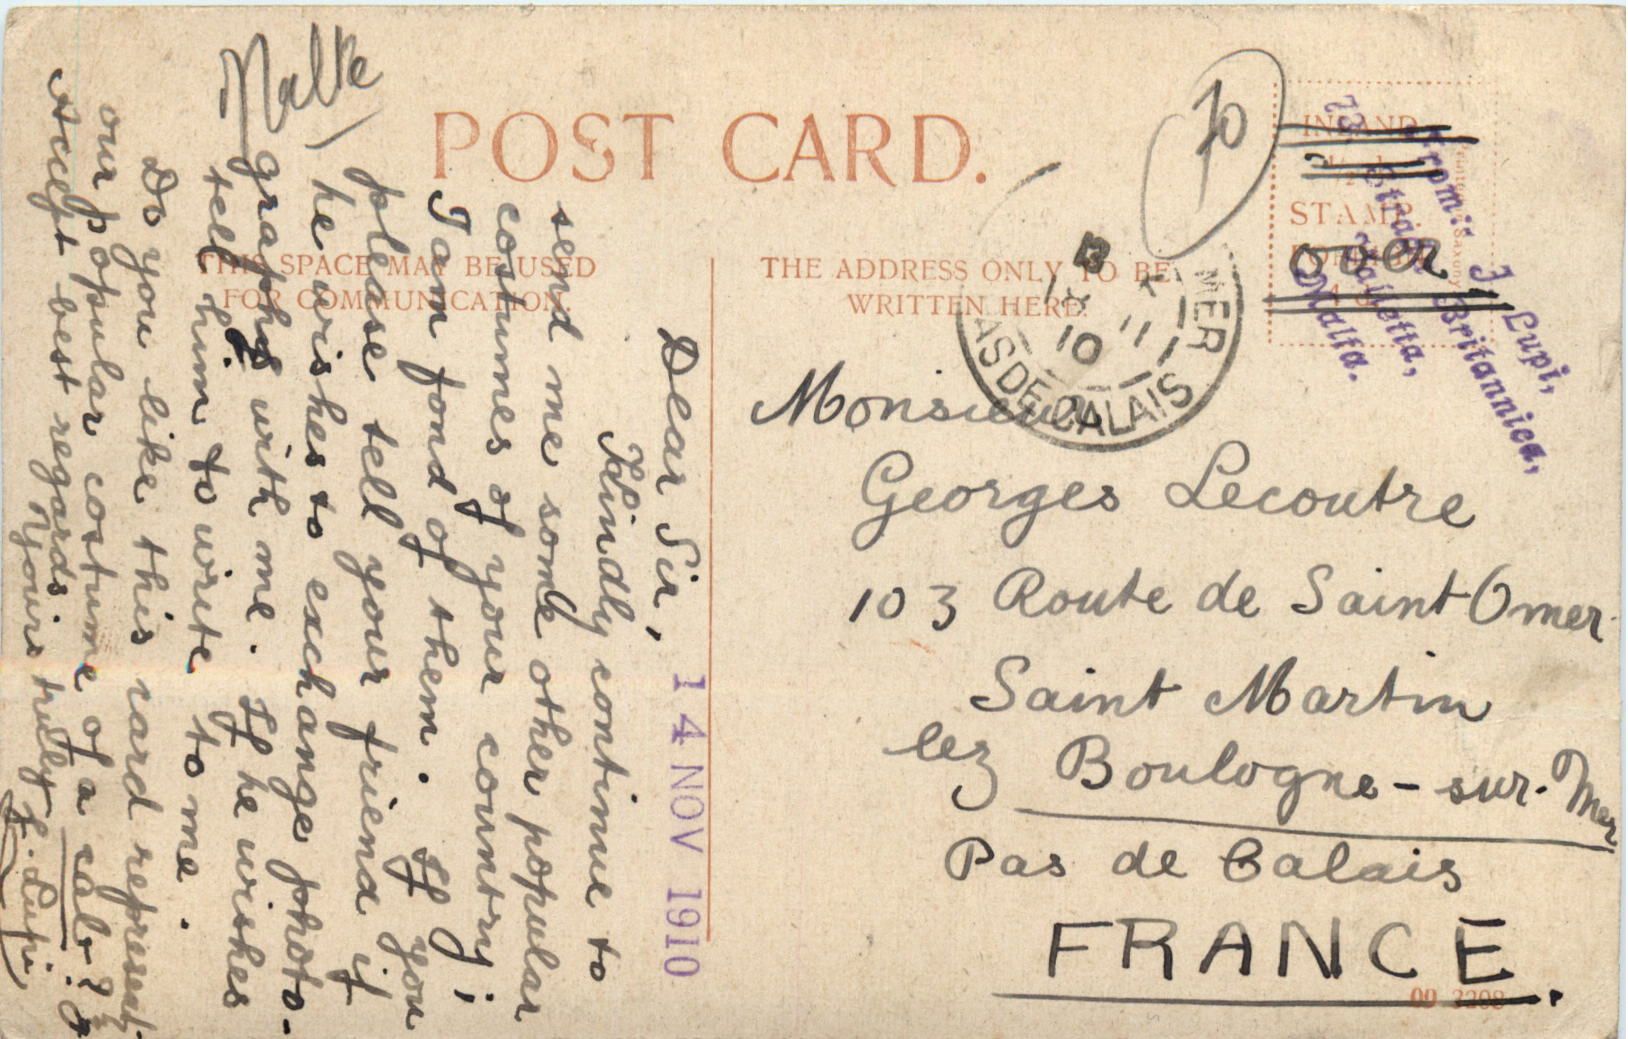 Malte
POST CARD.
THIS SPACE MAY BE USED
FOR COMMUNICATION.
THE ADDRESS ONLY TO BE
WRITTEN HERE.
Dear Sir,
14 NOV 1910
Kindly continue to
send me some other popular
costumes of your country;
I am fond of them. If you
please tell your friend if
he wishes to exchange photo-
graphs with me. If he wishes
tell him to write to me.
Do you like this card represent-
our popular costume of a cal-
Accept best regards.
Yours truly J. Lupi
70
INLAND
STAMP
From:- J. Lupi,
Strada Britannica,
Valletta,
Malta.
MER
PAS DE CALAIS
11
10
Monsieur
Georges Lecoutre
103 Route de Saint Omer
Saint Martin
lez Boulogne-sur-Mer
Pas de Calais
FRANCE.